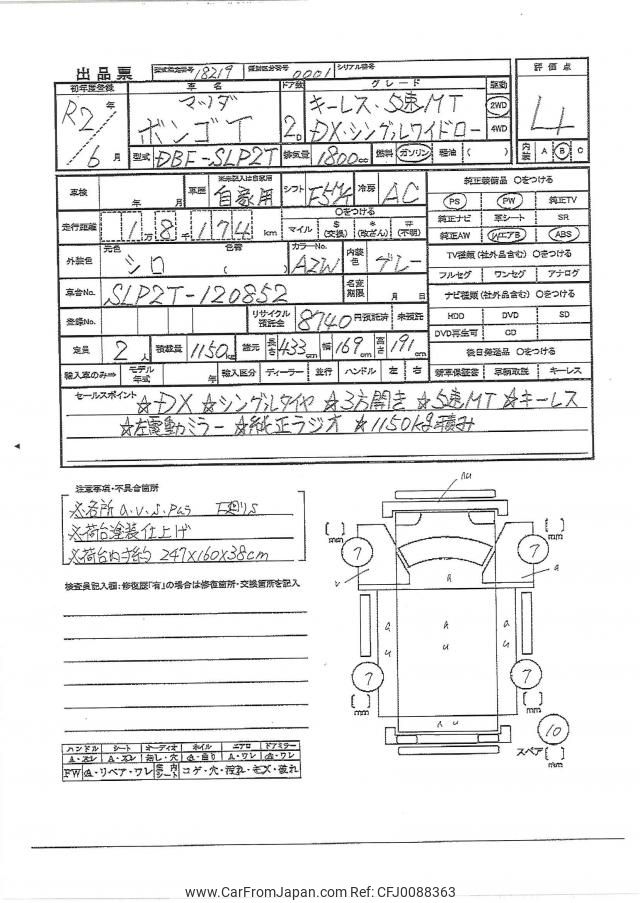 出品票
型式指定番号 18219 類別区分番号 0001 シリアル番号
初年度登録 車名 ドア数 グレード 駆動 評価点
R2年 6月
マツダ
ボンゴT
2D
キーレス・5速MT
DX・シングルワイドロー
2WD
4WD
型式 DBF-SLP2T 排気量 1800cc 燃料 ガソリン 軽油 ( )
内装 A B C
車検 年 月 車歴 ※未記入は自家用 自家用 シフト F5M 冷房 AC
純正装備品 ○をつける
PS PW 純正TV
純正ナビ 革シート SR
純正AW WエアB ABS
走行距離 1万8千174km ○をつける マイル $(交換) *(改ざん) #(不明)
外装色 元色 シロ 色替 ( ) カラーNo. A2W 内装色 グレー
TV種類(社外品含む) ○をつける
フルセグ ワンセグ アナログ
車台No. SLP2T-120852 名変期限 月 日
ナビ種類(社外品含む) ○をつける
HDD DVD SD
DVD再生可 CD
登録No. リサイクル預託金 8740円預託済 未預託
定員 2人 積載量 1150kg 諸元 長さ 433cm 幅 169cm 高さ 191cm
後日発送品 ○をつける
新車保証書 車輌取説 キーレス
輸入車のみ⇒ モデル年式 年 輸入区分 ディーラー 並行 ハンドル 左 右
セールスポイント ☆DX ☆シングルタイヤ ☆3方開き ☆5速MT ☆キーレス
☆左電動ミラー ☆純正ラジオ ☆1150kg積み
注意事項・不具合箇所
※各所a.v.s.pas 下廻りS
※荷台塗装仕上げ
※荷台内寸約 247×160×38cm
検査員記入欄:修復歴「有」の場合は修復箇所・交換箇所を記入
AU
[ ]mm 7 7 [ ]mm
v a a
a u a u a u
7 7
[ ]mm a u [ ]mm
10
スペア [ ]mm
ハンドル シート オーディオ ホイル エアロ ドアミラー
A・スレ A・スレ 無し・穴 A・曲り A・ワレ A・ワレ
FW A・リペア・ワレ 室内シート コゲ・穴・汚れ・モス・破れ
www.CarFromJapan.com Ref: CFJ0088363